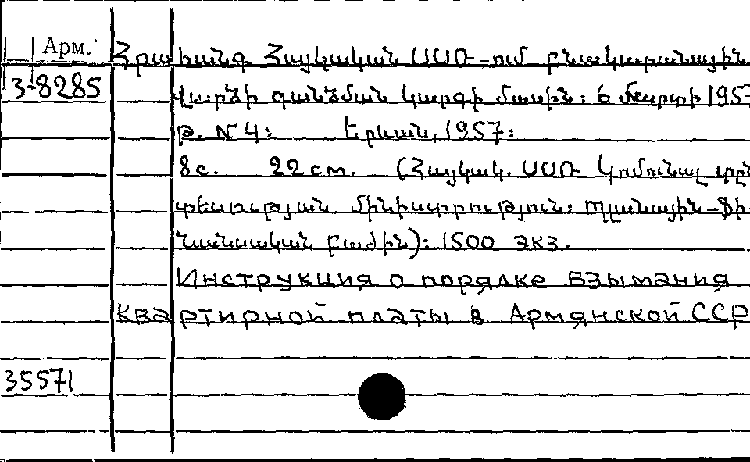 Арм.
3-8285
Հրահանգ Հայկական ՍՍՌ-ում բնակարանային
վարձի գանձման կարգի մասին: 6 մարտի 1957
թ. N 4: Երևան, 1957:
8 с. 22 см. (Հայկակ. ՍՍՌ Կոմունալ տըն
տեսության մինիստրություն: Պլանային-ֆի
նանսական բաժին): 1500 экз.
Инструкция о порядке взымания
квартирной платы в Армянской ССР
35571